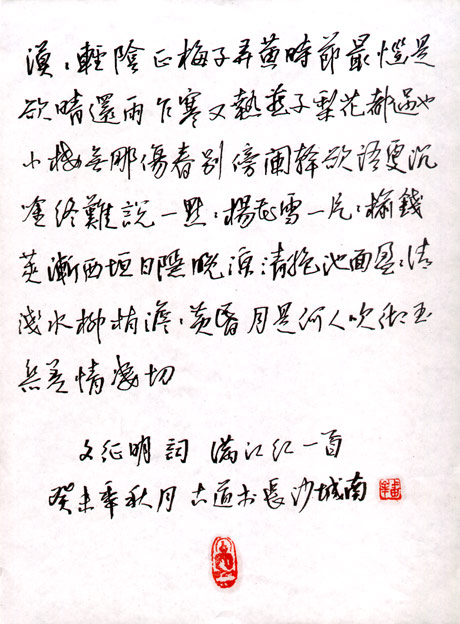 漠〻輕陰正梅子弄黃時節最惱是
欲晴還雨乍寒又熱燕子梨花都過也
小樓無那傷春別傍闌幹欲語更沉
唫終難說一點〻楊花雪一片〻榆錢
莢漸西垣日隱晚涼清絕池面盈〻清
淺水柳梢澹〻黃昏月是何人吹徹玉
參差情凄切
文征明詞 滿江红一首
癸未年秋月 古道书長沙城南